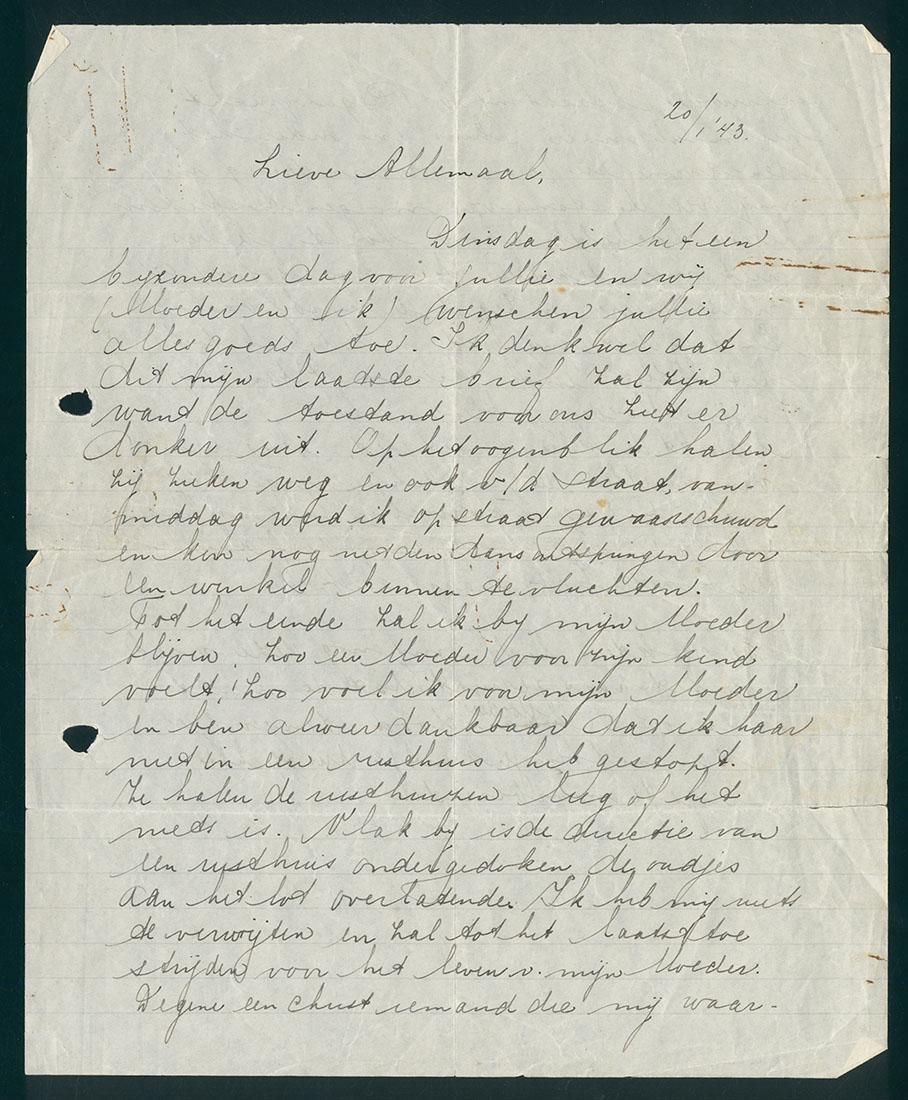 20/1 '43.
Lieve Allemaal,
Dinsdag is het een
byzondere dag voor jullie en wij
(Moeder en ik) wenschen jullie
alles goeds toe. Ik denk wel dat
dit mijn laatste brief zal zijn
want de toestand voor ons ziet er
donker uit. Op het oogenblik halen
zij zieken weg en ook v/d straat, van-
middag werd ik op straat gewaarschuwd
en kon nog net den dans ontspringen door
een winkel binnen te vluchten.
Tot het einde zal ik by mijn Moeder
blijven, zoo een Moeder voor zijn kind
voelt, zoo voel ik voor mijn Moeder
en ben alweer dankbaar dat ik haar
niet in een rusthuis heb gestopt.
Ze halen de rusthuizen leeg of het
niets is. Vlak by is de directie van
een rusthuis ondergedoken de oudjes
aan het lot overlatende. Ik heb mij niets
te verwijten en zal tot het laatst toe
strijden voor het leven v. mijn Moeder.
Degene een christ iemand die mij waar-